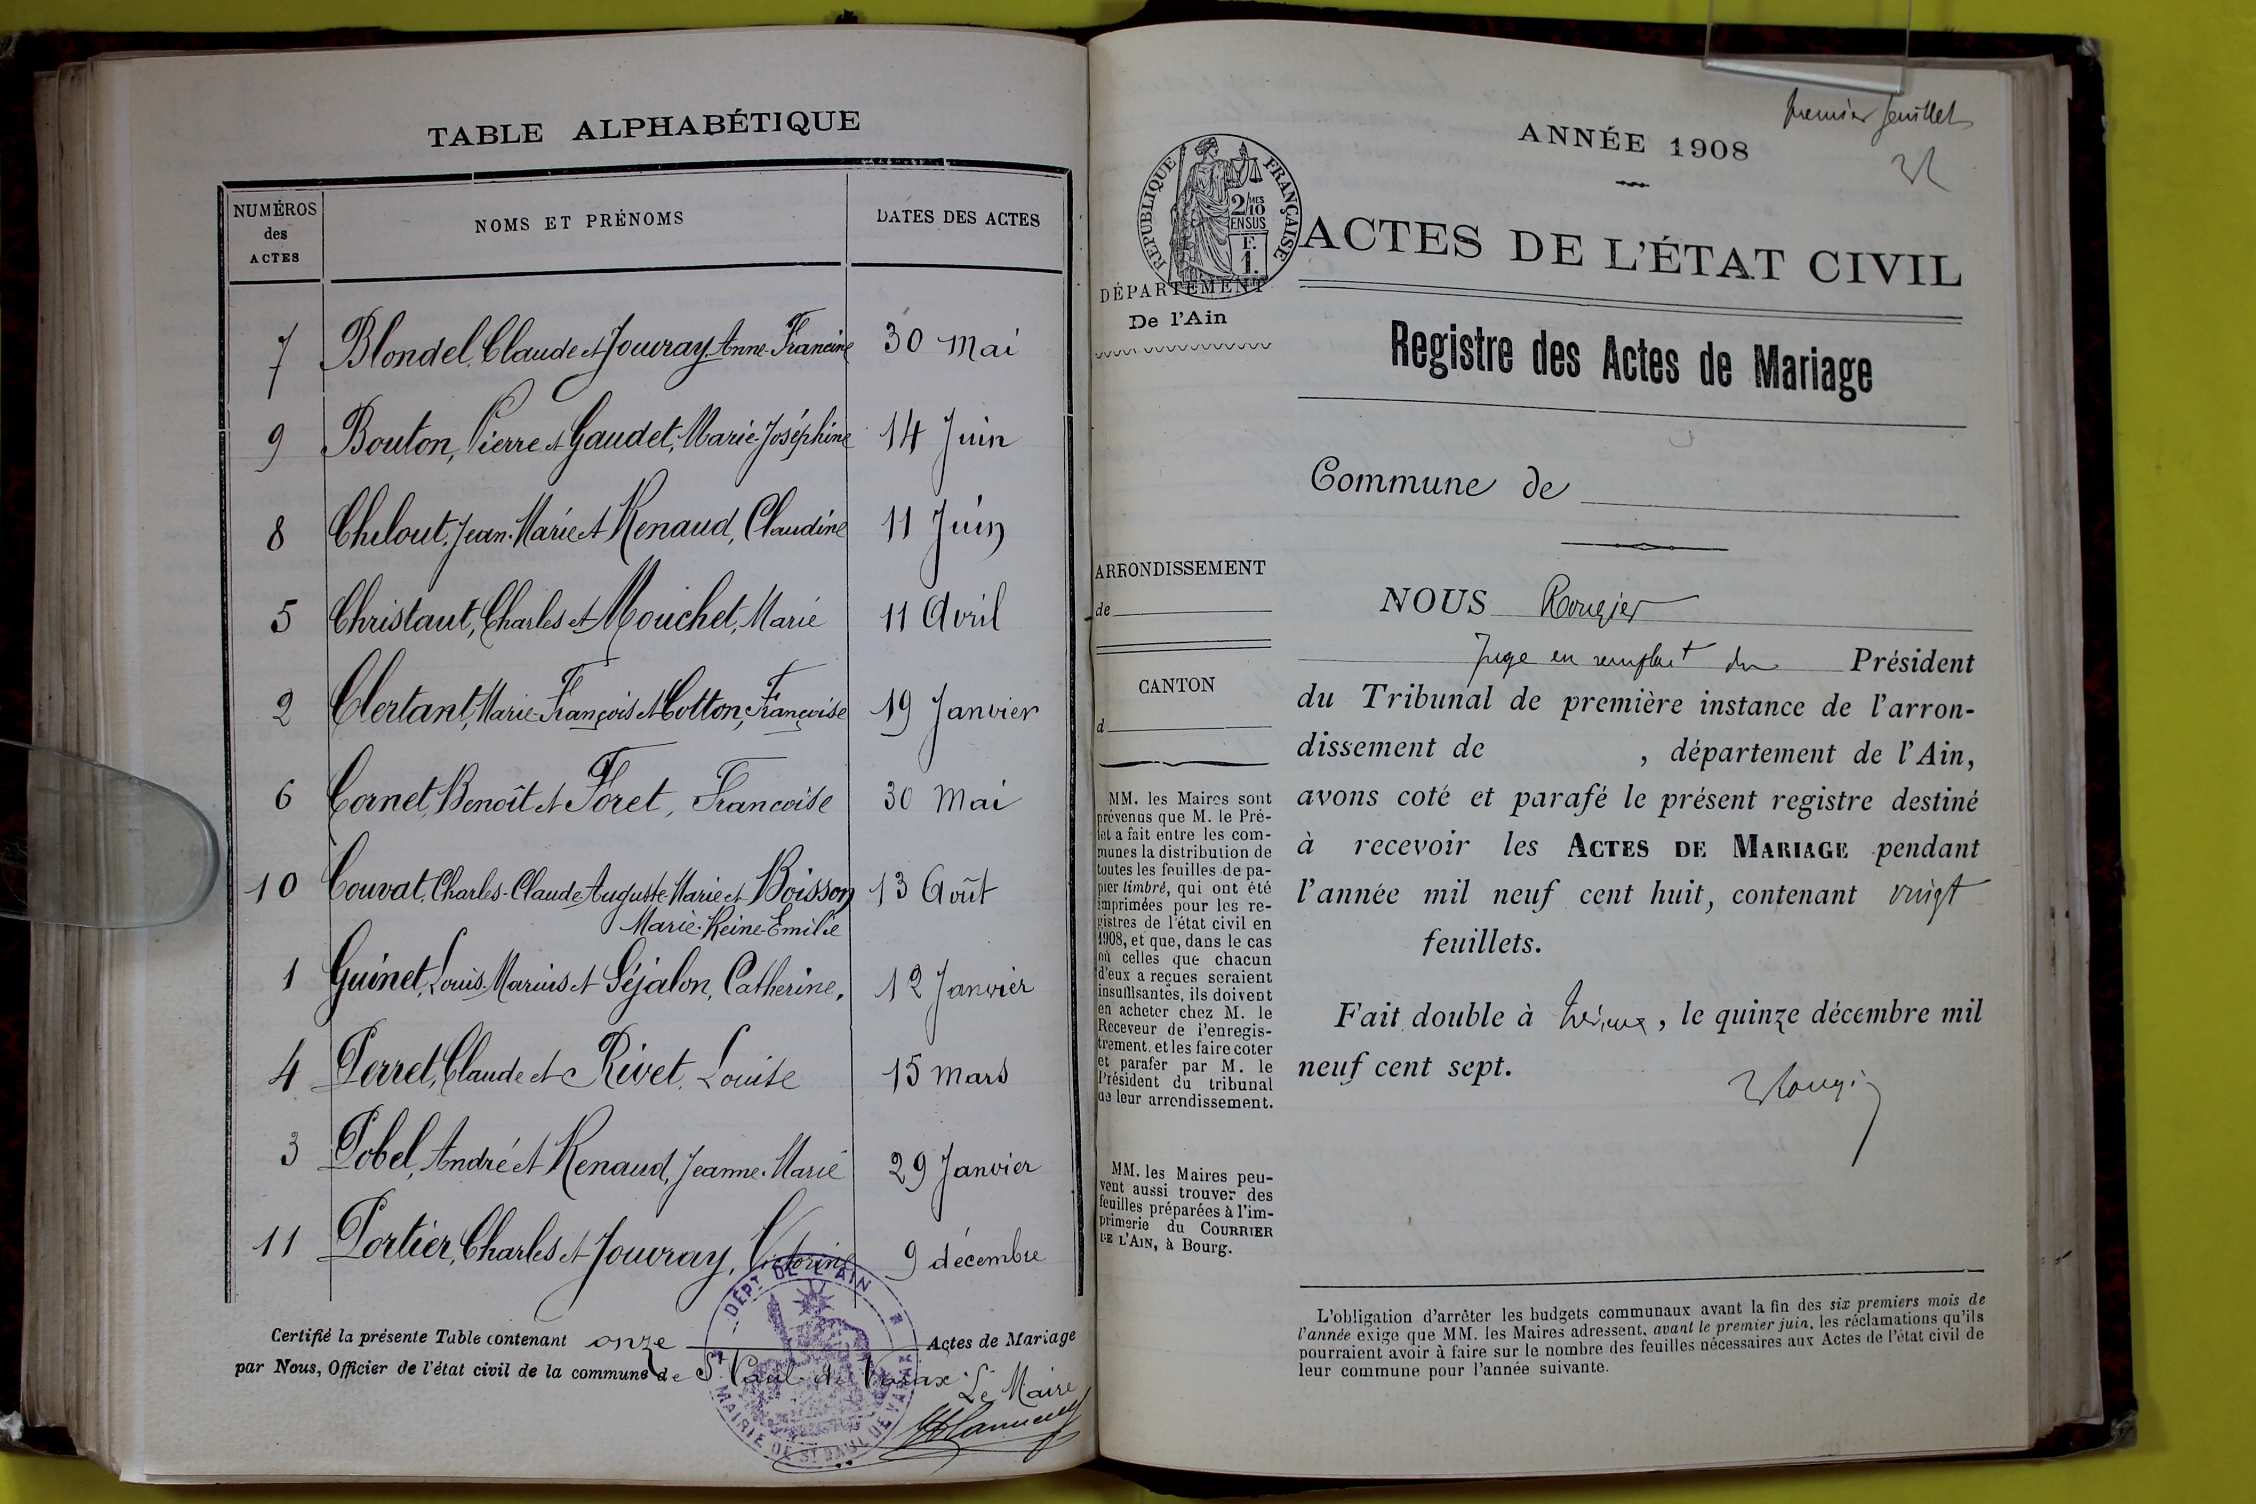 TABLE ALPHABÉTIQUE
NUMÉROS des ACTES
NOMS ET PRÉNOMS
DATES DES ACTES
7 Blondel, Claude et Jouvray Anne-Francine 30 Mai
9 Bouton, Pierre et Gaudet, Marie-Joséphine 14 Juin
8 Chelout, Jean-Marie et Renaud, Claudine 11 Juin
5 Christaut, Charles et Mouchet, Marie 11 Avril
2 Clertant, Marie-François et Cotton, Françoise 19 Janvier
6 Cornet, Benoît et Foret, Francoise 30 Mai
10 Couvat, Charles-Claude-Auguste-Marie et Boisson 13 Août
Marie-Reine-Emilie
1 Guinet, Louis-Marius et Séjalon, Catherine, 12 Janvier
4 Perret, Claude et Rivet, Louise 15 mars
3 Pobel, André et Renaud, Jeanne-Marie 29 Janvier
11 Portier, Charles et Jouvray, Victorine 9 décembre
Certifié la présente Table contenant onze Actes de Mariage
par Nous, Officier de l'état civil de la commune de St Paul de Varax
Le Maire
DÉPT DE L'AIN
MAIRIE DE ST PAUL DE VARAX
premier feuillet
ANNÉE 1908
RÉPUBLIQUE FRANÇAISE
2/10 MES
EN SUS
F.
1.
ACTES DE L'ÉTAT CIVIL
DÉPARTEMENT
De l'Ain
Registre des Actes de Mariage
Commune de
ARRONDISSEMENT
de
CANTON
d
NOUS Rougier
Juge en remplact du Président
du Tribunal de première instance de l'arron-
dissement de , département de l'Ain,
avons coté et parafé le présent registre destiné
à recevoir les ACTES DE MARIAGE pendant
l'année mil neuf cent huit, contenant vingt
feuillets.
Fait double à Trévoux, le quinze décembre mil
neuf cent sept.
Rougier
MM. les Maires sont
prévenus que M. le Pré-
fet a fait entre les com-
munes la distribution de
toutes les feuilles de pa-
pier timbré, qui ont été
imprimées pour les re-
gistres de l'état civil en
1908, et que, dans le cas
où celles que chacun
d'eux a reçues seraient
insuffisantes, ils doivent
en acheter chez M. le
Receveur de l'enregis-
trement, et les faire coter
et parafer par M. le
Président du tribunal
de leur arrondissement.
MM. les Maires peu-
vent aussi trouver des
feuilles préparées à l'im-
primerie du COURRIER
DE L'AIN, à Bourg.
L'obligation d'arrêter les budgets communaux avant la fin des six premiers mois de
l'année exige que MM. les Maires adressent, avant le premier juin, les réclamations qu'ils
pourraient avoir à faire sur le nombre des feuilles nécessaires aux Actes de l'état civil de
leur commune pour l'année suivante.